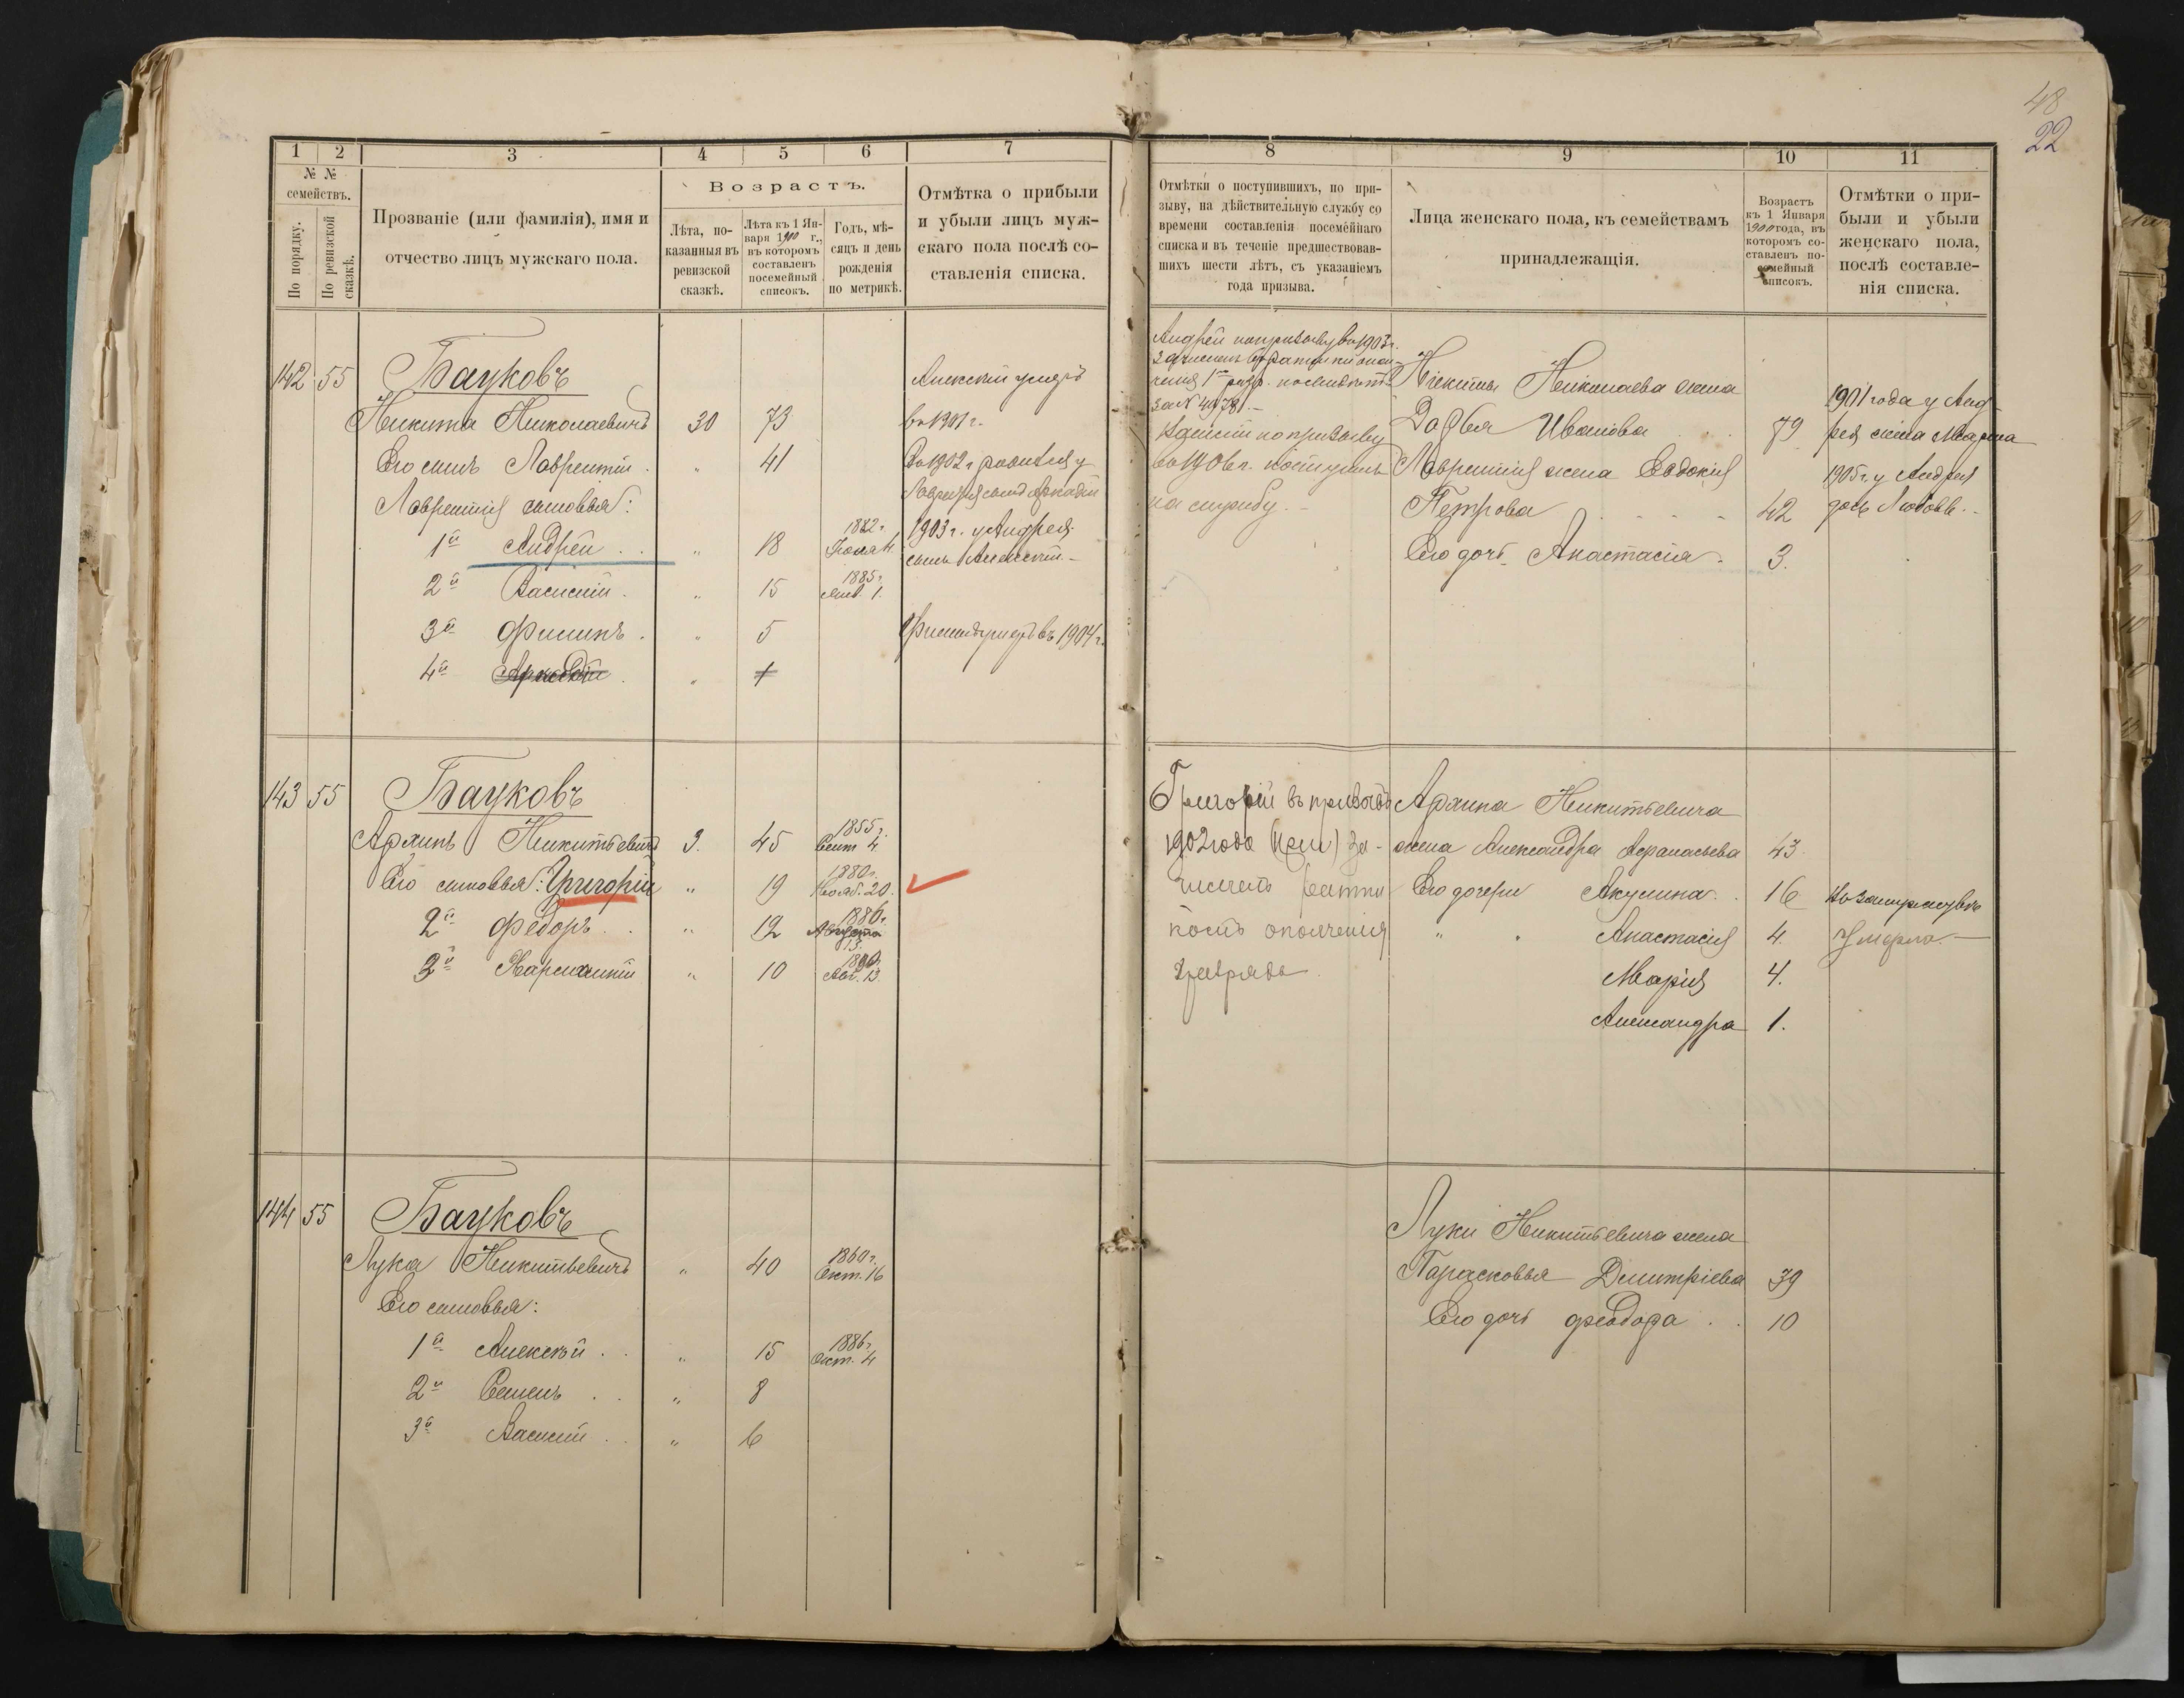 48
22
1
2
3
4
5
6
7
№ №
семействъ.
По порядку.
По ревизской
сказкѣ.
Прозваніе (или фамилія), имя и
отчество лицъ мужскаго пола.
Возрастъ.
Лѣта, по-
казанныя въ
ревизской
сказкѣ.
Лѣта къ 1 Ян-
варя 1900 г.,
въ которомъ
составленъ
посемейный
списокъ.
Годъ, мѣ-
сяцъ и день
рожденія
по метрикѣ.
Отмѣтка о прибыли
и убыли лицъ муж-
скаго пола послѣ со-
ставленія списка.
142 55 Бауковъ
Никита Николаевичъ 30 73
Его сынъ Лаврентій 41
Лаврентія сыновья:
1й Андрей „ 18 1882 г.
2й Василій „ 15 1885 г. 1.
3й Филипъ „ 5
4й Аркадій „ 1
Алексѣй умеръ
въ 1901 г.
Въ 1902 г. родился у
Лаврентія сынъ Аркадій
1903 г. у Андрея
сынъ Алексѣй
Филипъ умеръ въ 1904 г.
143 55 Бауковъ
Архипъ Никитьевичъ 3. 45 1855 г. Сент. 4.
Его сыновья: Григорій „ 19 1880 г. Нояб. 20.
2й Федоръ „ 12 1886 г. Августа 13.
3й „ 10 1890 г. Авг. 13.
144 55 Бауковъ
Лука Никитьевичъ „ 40 1860 г. Окт. 16
Его сыновья:
1й Алексѣй „ 15 1886 г. Окт. 4
2й Семенъ „ 8
3й Василій „ 6
8
9
10
11
Отмѣтки о поступившихъ, по при-
зыву, на дѣйствительную службу со
времени составленія посемейнаго
списка и въ теченіе предшествовав-
шихъ шести лѣтъ, съ указаніемъ
года призыва.
Лица женскаго пола, къ семействамъ
принадлежащія.
Возрастъ
къ 1 Января
1900 года, въ
которомъ со-
ставленъ по-
семейный
списокъ.
Отмѣтки о при-
были и убыли
женскаго пола,
послѣ составле-
нія списка.
Андрей по призыву въ 1903 г.
зачисленъ въ ратники опол-
ченія 1го разр.
за №
по призыву
въ 1906 г. поступилъ
на службу.
Никиты Николаева жена
Дарья Иванова 79
Лаврентія жена Евдокія
Петрова 42
Его дочь Анастасія 3.
1901 года у Анд-
рея жена Марѳа
1905 г. у Андрея
дочь Любовь.
Григорій въ призывъ
1902 года за-
численъ ратни
комъ ополченія
разряда
Архипа Никитьевича
жена Александра Афанасьева 43
Его дочери Акулина 16 въ замужествѣ
„ „ Анастасія 4. Умерла.
Марія 4.
Александра 1.
Луки Никитьевича жена
Парасковья Димитріева 39
Его дочь Феодора 10